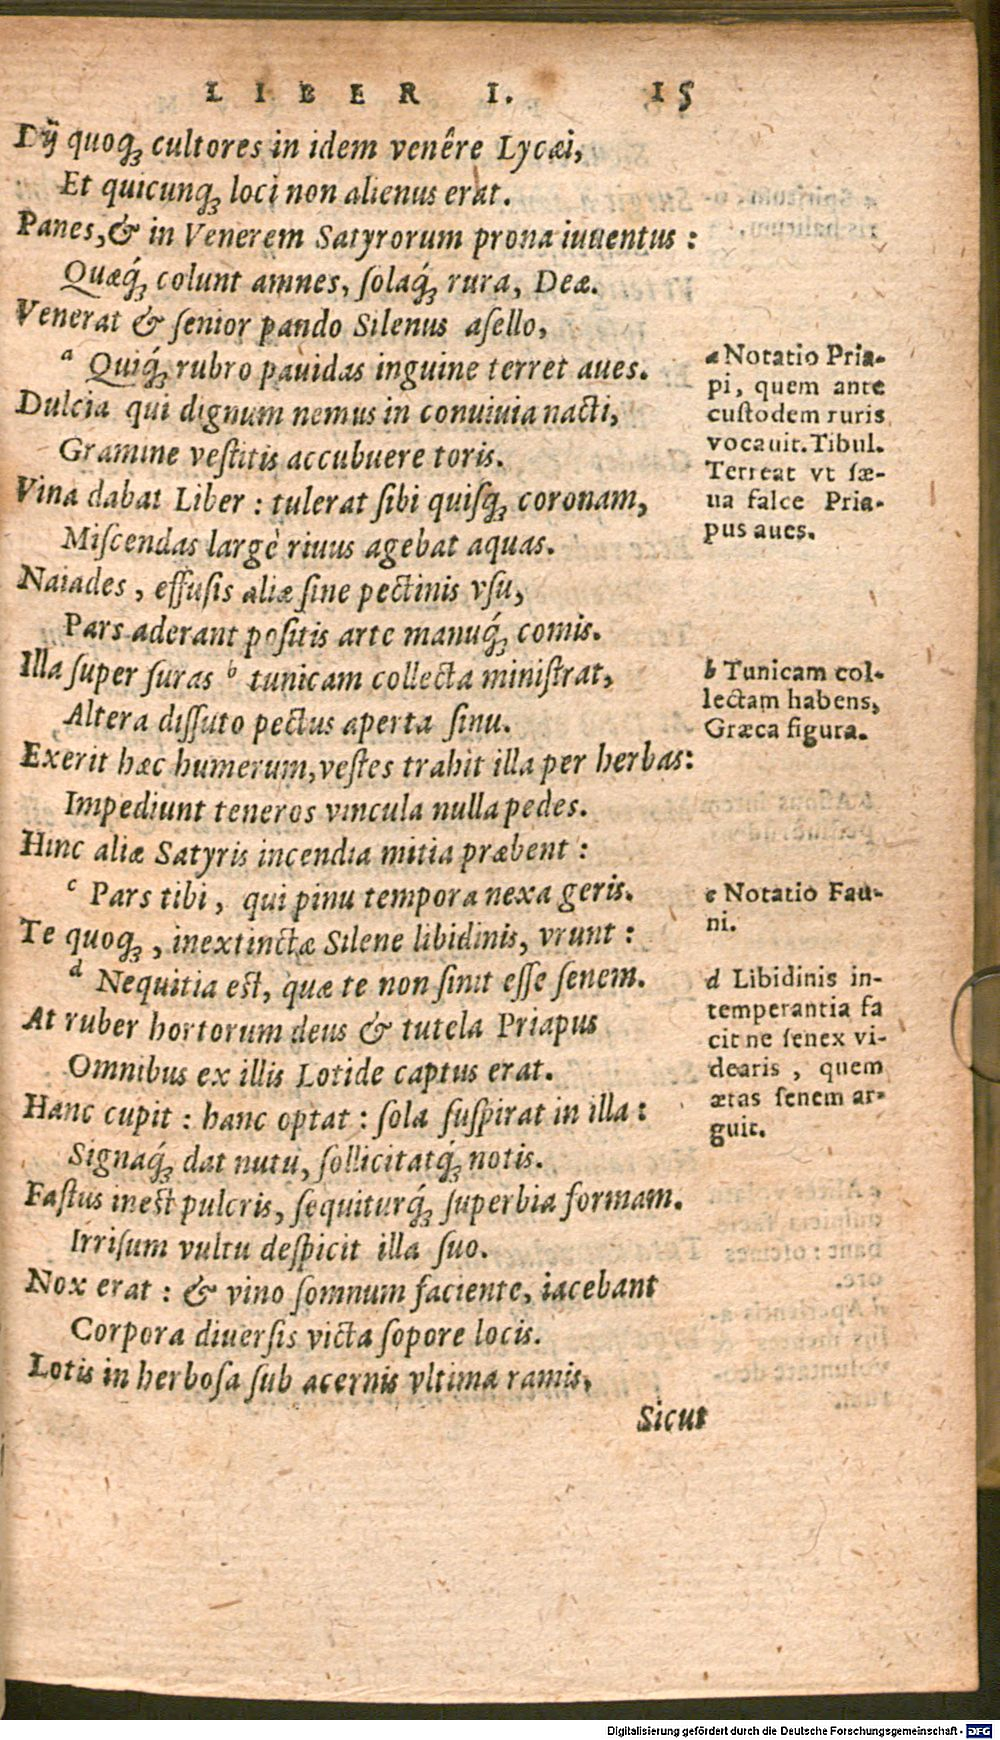 LIBER I. 15
Dij quoq; cultores in idem venêre Lycæi,
Et quicunq; loci non alienus erat.
Panes, & in Venerem Satyrorum prona iuuentus :
Quæq́; colunt amnes, ſolaq́; rura, Deæ.
Venerat & ſenior pando Silenus aſello,
a Quiq́; rubro pauidas inguine terret aues.
Dulcia qui dignum nemus in conuiuia nacti,
Gramine veſtitis accubuere toris.
Vina dabat Liber : tulerat ſibi quiſq; coronam,
Miſcendas largè riuus agebat aquas.
Naiades , effuſis aliæ ſine pectinis vſu,
Pars aderant poſitis arte manuq́; comis.
Illa ſuper ſuras b tunicam collecta miniſtrat,
Altera diſſuto pectus aperta ſinu.
Exerit hæc humerum, veſtes trahit illa per herbas:
Impediunt teneros vincula nulla pedes.
Hinc aliæ Satyris incendia mitia præbent :
c Pars tibi , qui pinu tempora nexa geris.
Te quoq; , inextinctæ Silene libidinis, vrunt :
d Nequitia est, quæ te non ſinit eſſe ſenem.
At ruber hortorum deus & tutela Priapus
Omnibus ex illis Lotide captus erat.
Hanc cupit : hanc optat : ſola ſuſpirat in illa :
Signaq́; dat nutu, ſollicitatq́; notis.
Faſtus inest pulcris, ſequiturq́; ſuperbia formam.
Irriſum vultu deſpicit illa ſuo.
Nox erat : & vino ſomnum faciente, iacebant
Corpora diuerſis victa ſopore locis.
Lotis in herboſa ſub acernis vltima ramis,
Sicut
a Notatio Pria-
pi, quem ante
cuſtodem ruris
vocauit. Tibul.
Terreat vt ſæ-
ua falce Pria-
pus aues.
b Tunicam col-
lectam habens,
Græca figura.
c Notatio Fau-
ni.
d Libidinis in-
temperantia fa
cit ne ſenex vi-
dearis , quem
ætas ſenem ar-
guit.
Digitalisierung gefördert durch die Deutsche Forschungsgemeinschaft - DFG